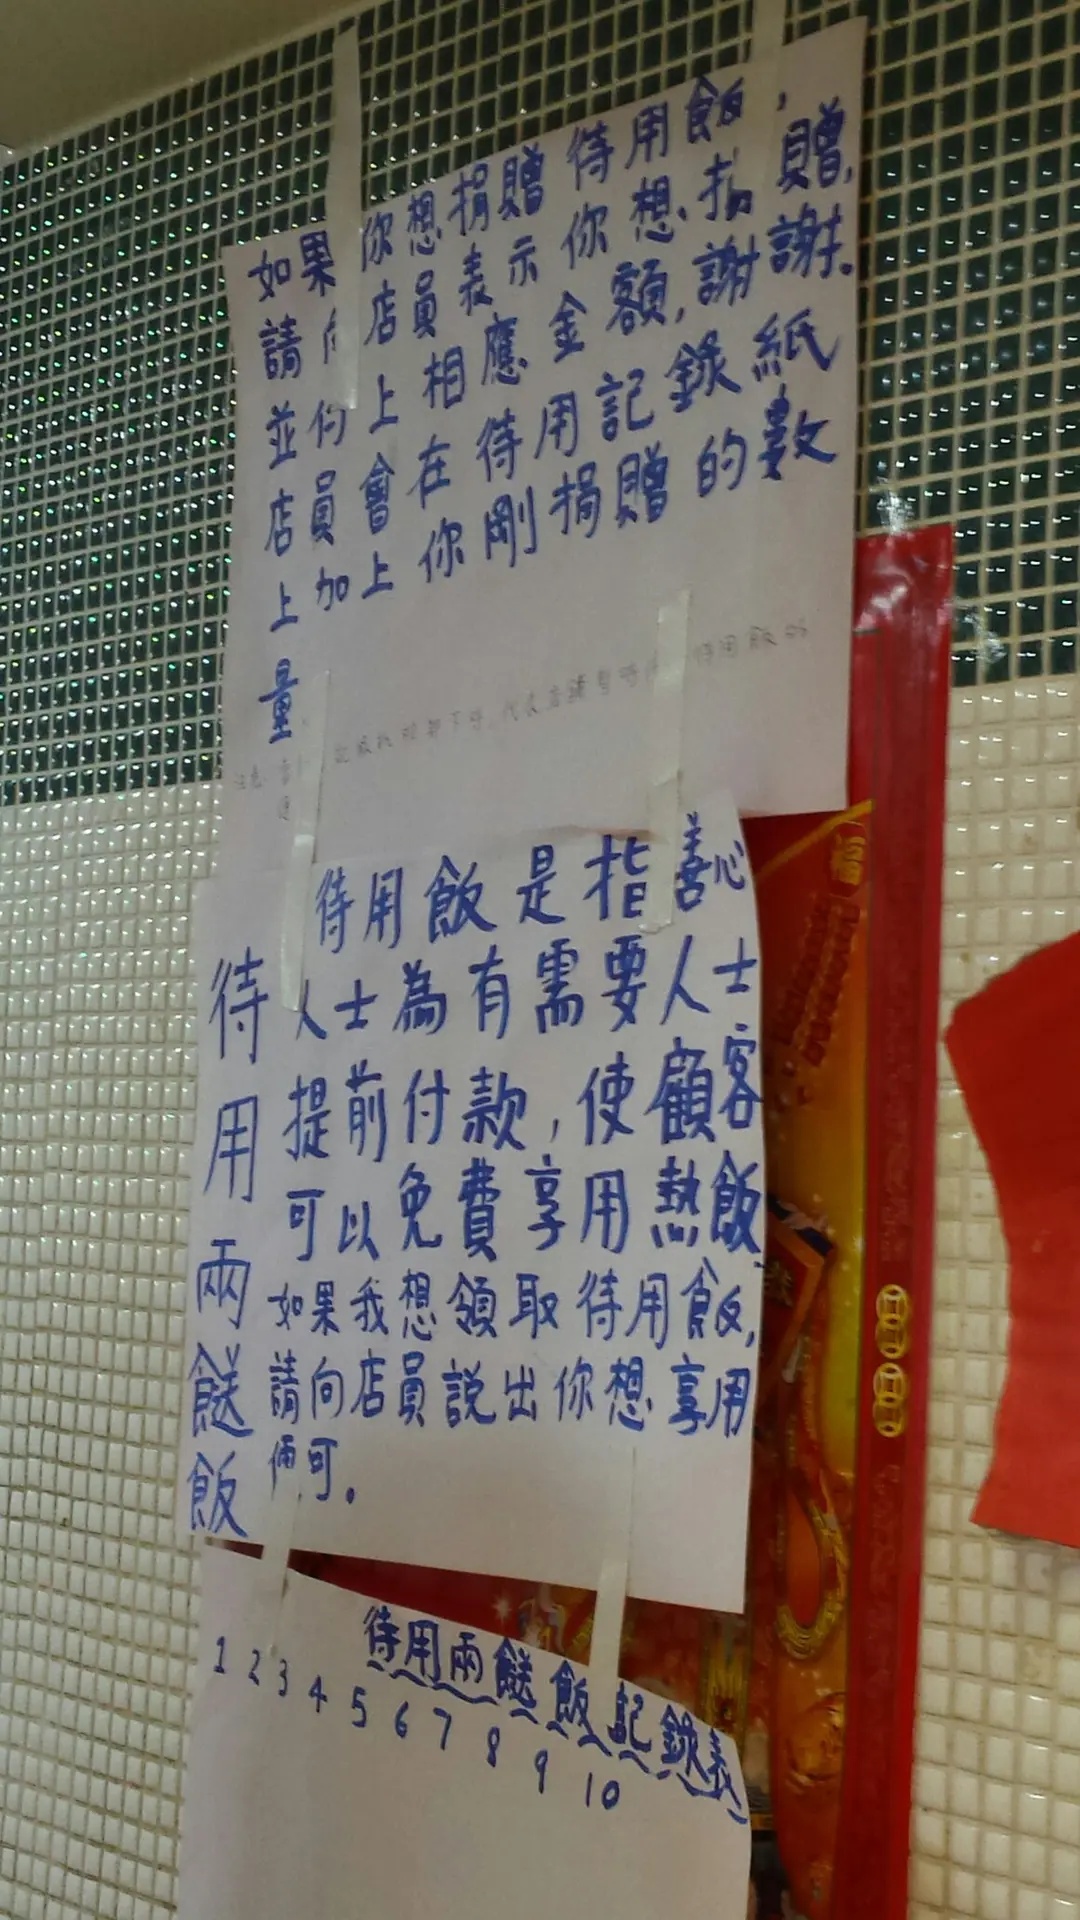 如果你想捐贈待用飯,
請向店員表示你想捐贈,
並付上相應金額,謝謝。
店員會在待用記錄紙
上加上你剛捐贈的數
量.
待用飯的
代表店鋪暫時
待用兩餸飯
待用飯是指善心
人士為有需要人士
提前付款,使顧客
可以免費享用熱飯
如果我想領取待用飯,
請向店員説出你想享用
便可。
待用兩餸飯記錄表
1 2 3 4 5 6 7 8 9 10